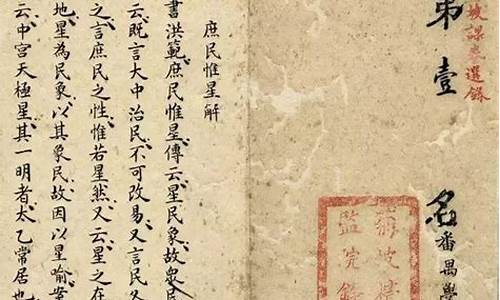 坡課卷選錄
第壹名
番禺學
坡
監院錄
庶民惟星解
書洪範庶民惟星傳云星民象故衆民
云既言大中治民不可改易又言民
之言庶民之性惟若星然又云星之在
地星為民象以其象民故因以星喻案
云中宮天極星其一明者太乙常居也